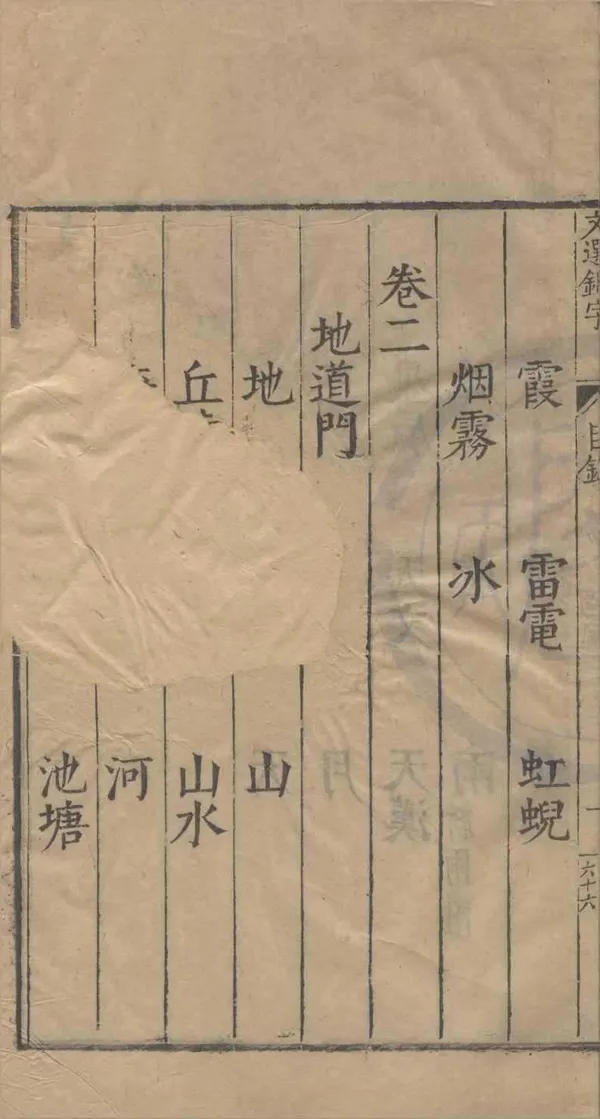 文選錦字
目錄
一
六十六
霞 雷電 虹蜺
烟霧 冰
卷二
地道門
地 山
丘 山水
河
池塘